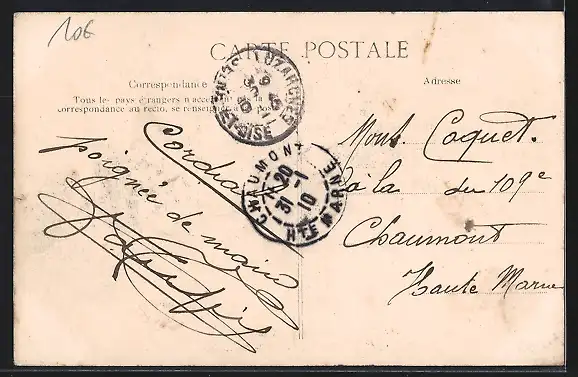 10€
CARTE POSTALE
Correspondance
Adresse
Tous les pays étrangers n'acceptent pas la
correspondance au recto, se renseigner à la poste
LUZARCHES
SEINE-ET-OISE
CHAUMONT
20
31 -1
10
HTE MARNE
Cordiale
poignée de main
Mons Coquet.
du 109e
Chaumont
Haute Marne